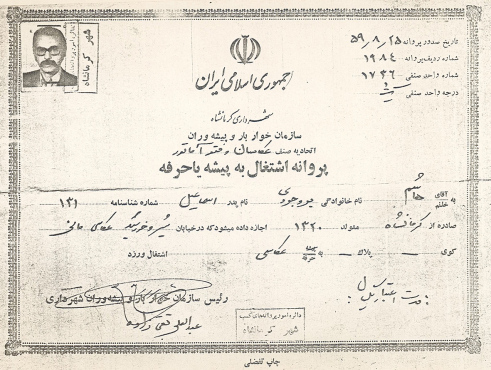 تاریخ صدور پروانه ۵۹/۸/۲۵
شماره ردیف پروانه ۱۹۸۴
شماره واحد صنفی ۱۷۳۶
درجه واحد صنفی
شهر کرمانشاه
جمهوری اسلامی ایران
شهرداری کرمانشاه
سازمان خوار بار و پیشه وران
اتحادیه صنف عکاسان و
پروانه اشتغال به پیشه یا حرفه
به آقای خانم هاشم نام خانوادگی بروجردی نام پدر اسماعیل شماره شناسنامه ۱۳۱
صادره از کرمانشاه متولد ۱۳۲۰ اجازه داده میشود که در خیابان شیر و خورشید عکاسی مانی
کوی — پلاک — به عکاسی اشتغال ورزد
مدت اعتبار یکسال
رئیس سازمان خوار بار و پیشه وران شهرداری
دایره امور پروانه‌های کسب
شهر کرمانشاه
چاپ تفضلی